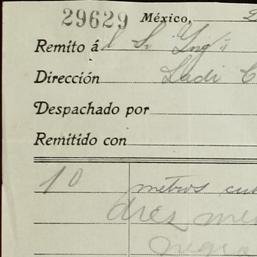 29629 México, 2
Remito á l Sr. Ing
Dirección
Despachado por
Remitido con
10 metros cu
diez me
negra